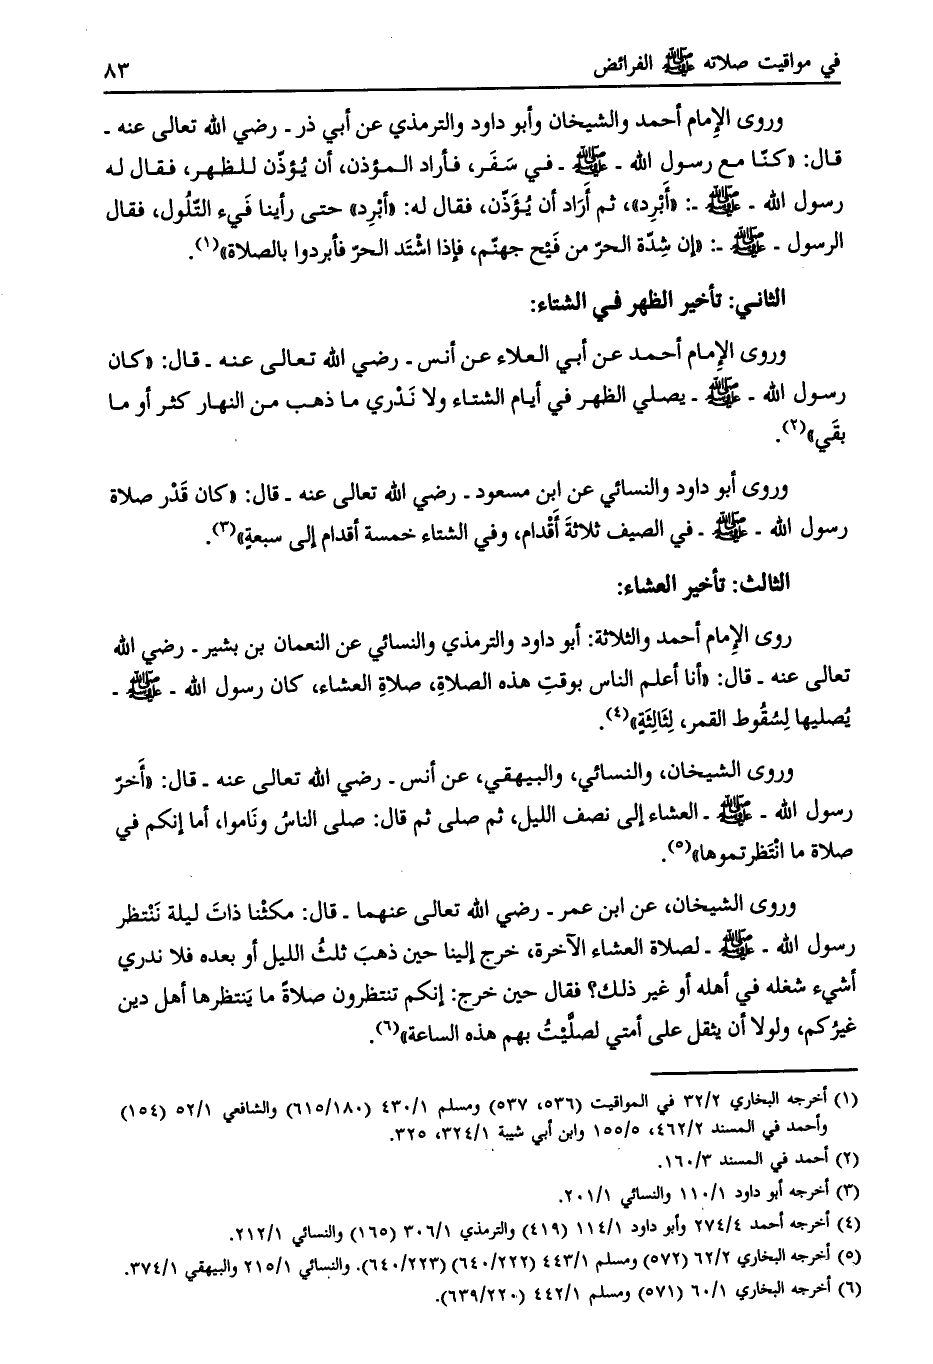 في مواقيت صلاته ﷺ الفرائض ٨٣
وروى الإمام أحمد والشيخان وأبو داود والترمذي عن أبي ذر ـ رضي الله تعالى عنه ـ
قال: «كنّا مع رسول الله ـ ﷺ ـ في سَفَر، فأراد المؤذن، أن يُؤذّن للظهر، فقال له
رسول الله ـ ﷺ ـ: «أَبْرِد»، ثم أَرَاد أن يُؤَذّن، فقال له: «أبْرِد» حتى رأينا فَيء التّلُول، فقال
الرسول ـ ﷺ ـ: «إن شِدّة الحرّ من فَيْح جهنّم، فإذا اشْتَد الحرّ فأبردوا بالصلاة»(١).
الثاني: تأخير الظهر في الشتاء:
وروى الإمام أحمد عن أبي العلاء عن أنس ـ رضي الله تعالى عنه ـ قال: «كان
رسول الله ـ ﷺ ـ يصلي الظهر في أيام الشتاء ولا نَدْري ما ذهب من النهار كثر أو ما
بقَي»(٢).
وروى أبو داود والنسائي عن ابن مسعود ـ رضي الله تعالى عنه ـ قال: «كان قَدْر صلاة
رسول الله ـ ﷺ ـ في الصيف ثلاثةَ أَقْدام، وفي الشتاء خمسة أقدام إلى سبعةٍ»(٣).
الثالث: تأخير العشاء:
روى الإمام أحمد والثلاثة: أبو داود والترمذي والنسائي عن النعمان بن بشير ـ رضي الله
تعالى عنه ـ قال: «أنا أعلم الناس بوقتِ هذه الصلاةِ، صلاةِ العشاء، كان رسول الله ـ ﷺ ـ
يُصليها لِسُقُوط القمر، لِثَالِثَةٍ»(٤).
وروى الشيخان، والنسائي، والبيهقي، عن أنس ـ رضي الله تعالى عنه ـ قال: «أَخرّ
رسول الله ـ ﷺ ـ العشاء إلى نصف الليل، ثم صلى ثم قال: صلى الناسُ ونَاموا، أما إنكم في
صلاة ما انْتَظرتموها»(٥).
وروى الشيخان، عن ابن عمر ـ رضي الله تعالى عنهما ـ قال: مكثْنا ذاتَ ليلة نَنْتظر
رسول الله ـ ﷺ ـ لصلاة العشاء الآخرة، خرج إلينا حين ذهبَ ثلثُ الليل أو بعده فلا ندري
أشيء شغله في أهله أو غير ذلك؟ فقال حين خرج: إنكم تنتظرون صلاةً ما يَنتظرها أهل دين
غيرُكم، ولولا أن يثقل على أمتي لصلَّيْتُ بهم هذه الساعة»(٦).
(١) أخرجه البخاري ٣٢/٢ في المواقيت (٥٣٦، ٥٣٧) ومسلم ٤٣٠/١ (٦١٥/١٨٠) والشافعي ٥٢/١ (١٥٤)
وأحمد في المسند ٤٦٢/٢، ١٥٥/٥ وابن أبي شيبة ٣٢٤/١، ٣٢٥.
(٢) أحمد في المسند ١٦٠/٣.
(٣) أخرجه أبو داود ١١٠/١ والنسائي ٢٠١/١.
(٤) أخرجه أحمد ٢٧٤/٤ وأبو داود ١١٤/١ (٤١٩) والترمذي ٣٠٦/١ (١٦٥) والنسائي ٢١٢/١.
(٥) أخرجه البخاري ٦٢/٢ (٥٧٢) ومسلم ٤٤٣/١ (٦٤٠/٢٢٢) (٦٤٠/٢٢٣). والنسائي ٢١٥/١ والبيهقي ٣٧٤/١.
(٦) أخرجه البخاري ٦٠/١ (٥٧١) ومسلم ٤٤٢/١ (٦٣٩/٢٢٠).